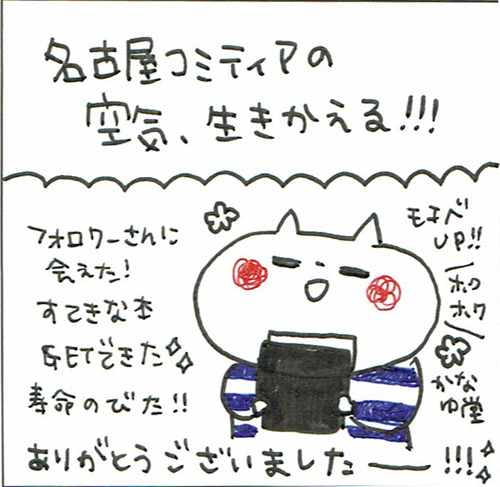 名古屋コミティアの
空気、生きかえる!!!
フォロワーさんに
会えた!
すてきな本
GETできた
寿命のびた!!
モチベ
UP!!
ホク
ホク
かな
ゆ堂
ありがとうございましたー!!!